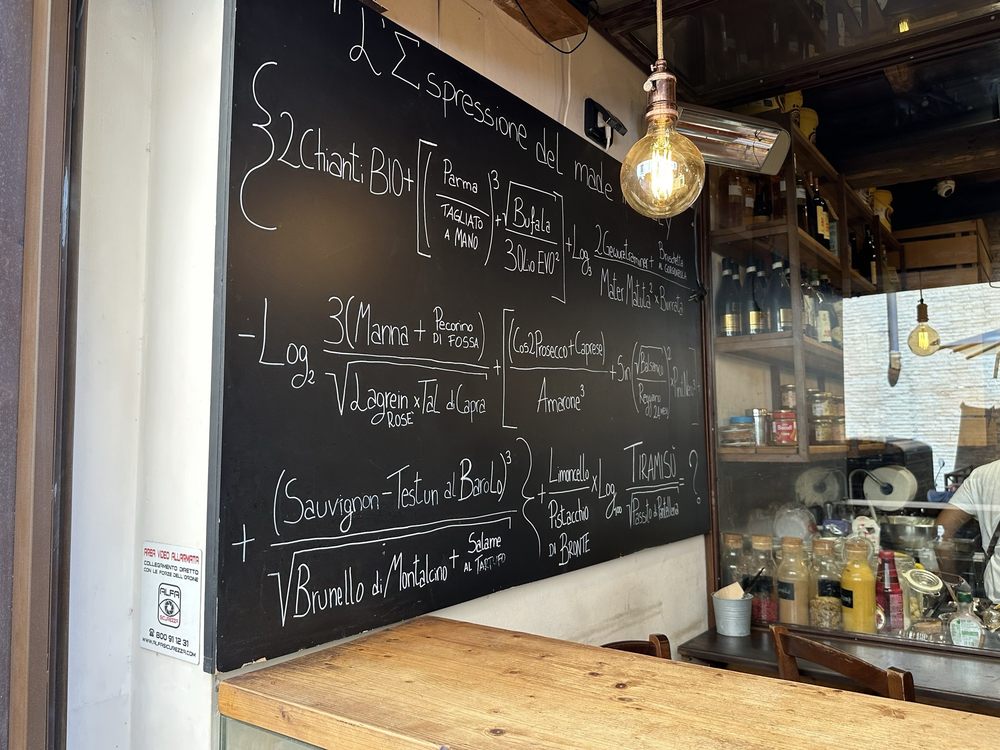 "L'Σspressione del made
{2Chianti BIO+[(Parma
TAGLIATO
A MANO)³+√Bufala
3Olio EVO²]+Log₃ 2Gewurztraminer+Bruschetta
Mater Matuta²×Burrata
-Log₂ 3(Manna + Pecorino
DI FOSSA)
√Lagrein ROSÈ×Tal di Capra
+[(Cos2Prosecco+Caprese)
Amarone³
+Sin(√Balsamico
Reggiano
+ (Sauvignon-Testun al Barolo)³
√Brunello di Montalcino + Salame
AL TARTUFO}
+Limoncello
Pistacchio
DI BRONTE
×Log TIRAMISÙ
√Passito di Pantelleria
= ?
AREA VIDEO ALLARMATA
COLLEGAMENTO DIRETTO
CON LE FORZE DELL'ORDINE
ALFA
SICUREZZA
☎ 800 91 12 31
WWW.ALFASICUREZZA.COM